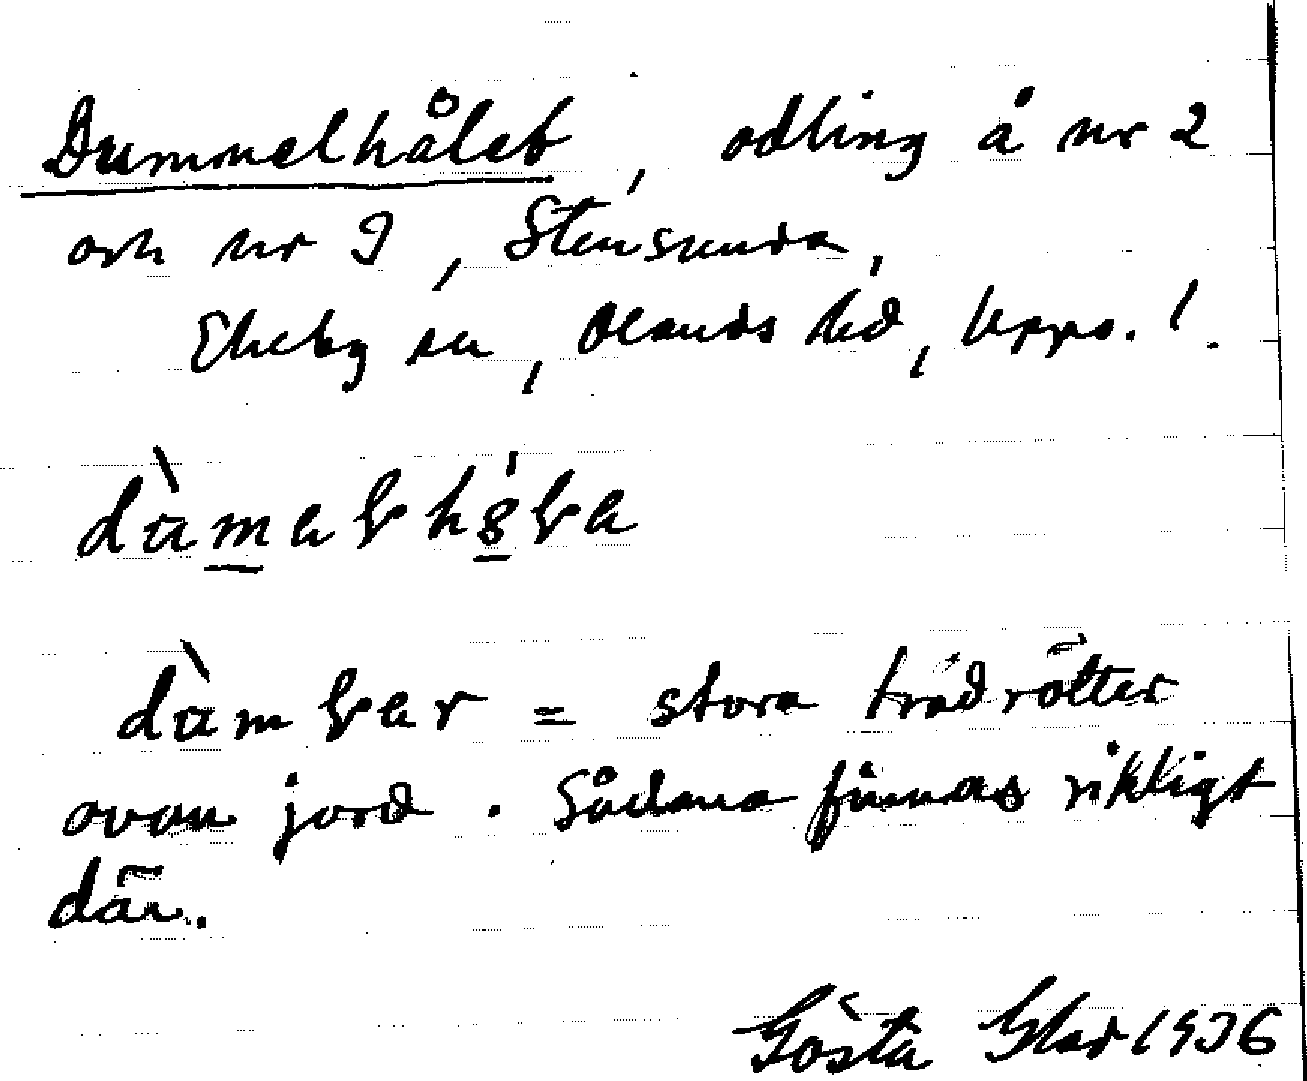 Dummelhålet, odling å nr 2
och nr 3, Stensunda,
Ekeby sn, Olands hd, Upps. l.
dùmaɽhǫ́ɽa
dùmɽar = stora trädrötter
ovan jord. Sådana finnas rikligt
där.
Gösta 1936